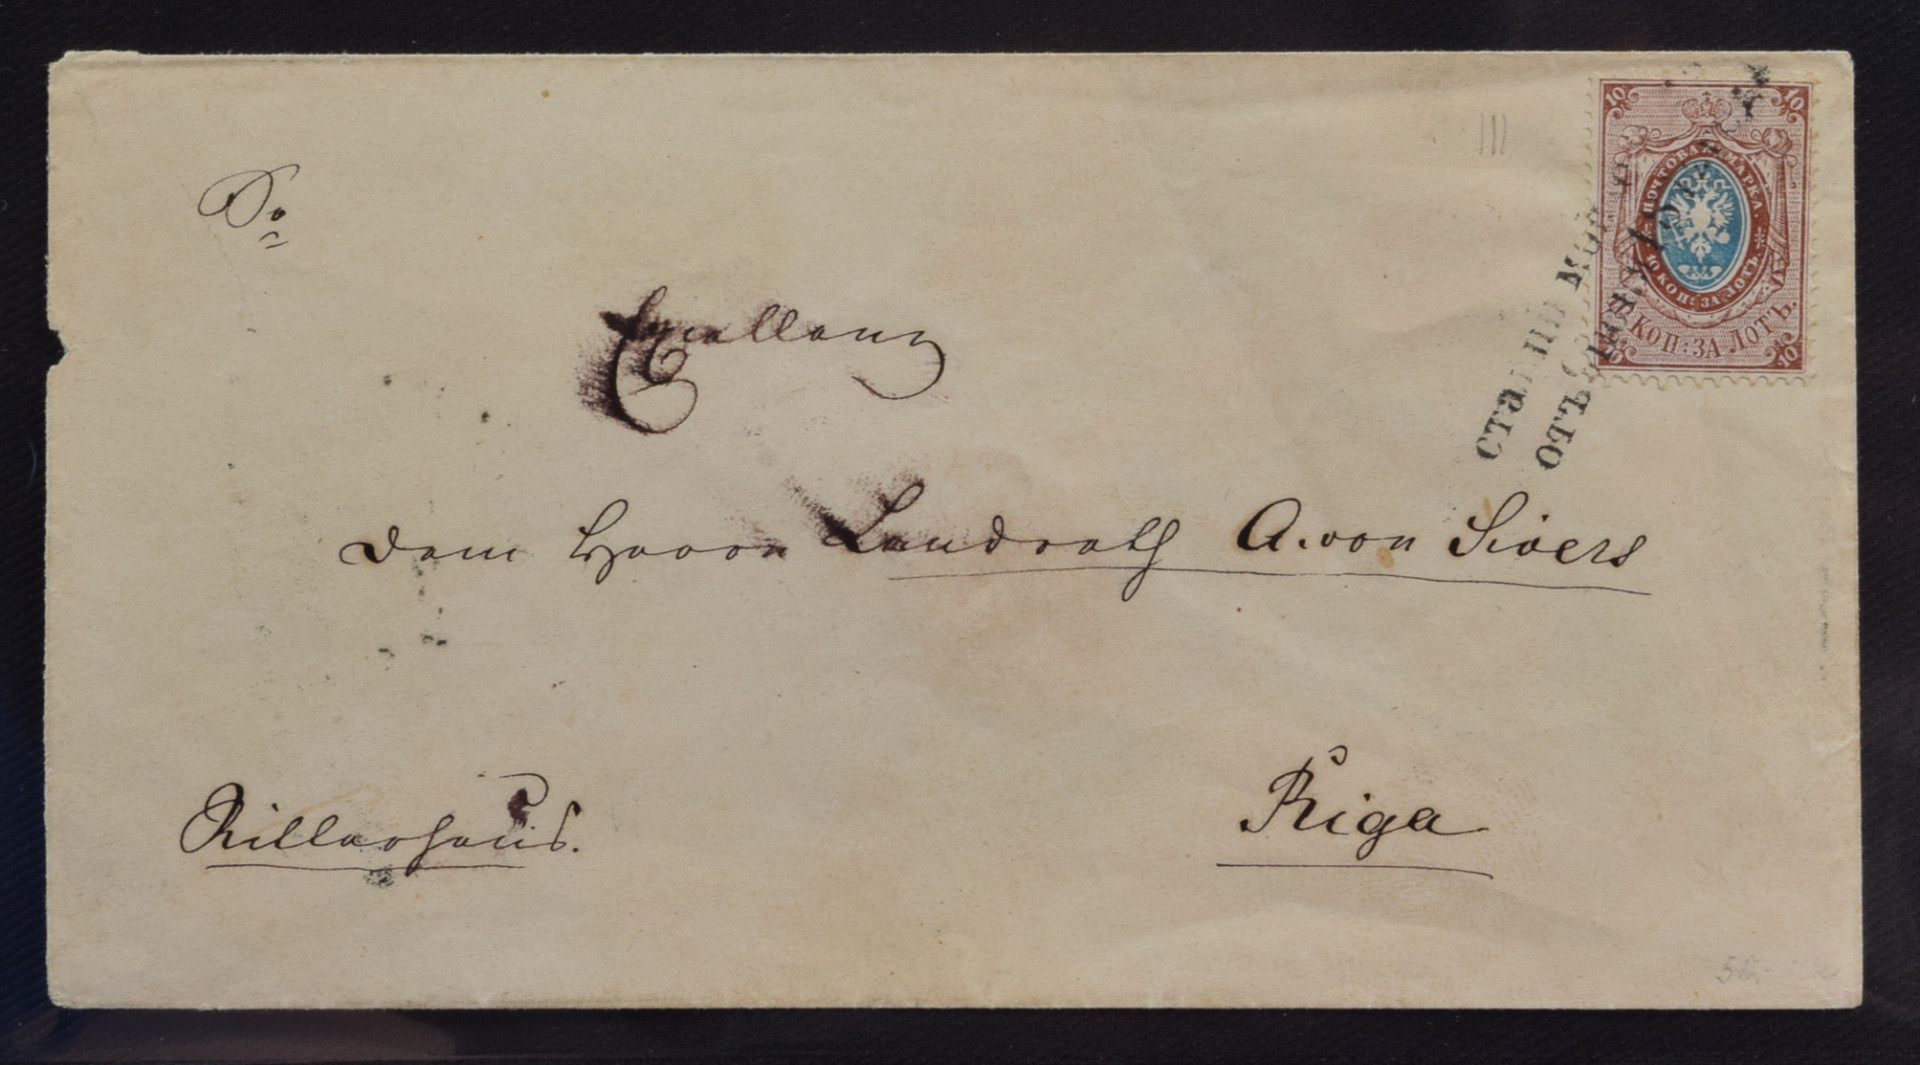 Sr
Excellenz
dem Herrn Landrath A. von Sivers
Ritterhaus.
Riga
10 10
ПОЧТОВАЯ МАРКА
10 КОП: ЗА ЛОТЪ
КОП: ЗА ЛОТЪ.
10 10
станціи
отъ